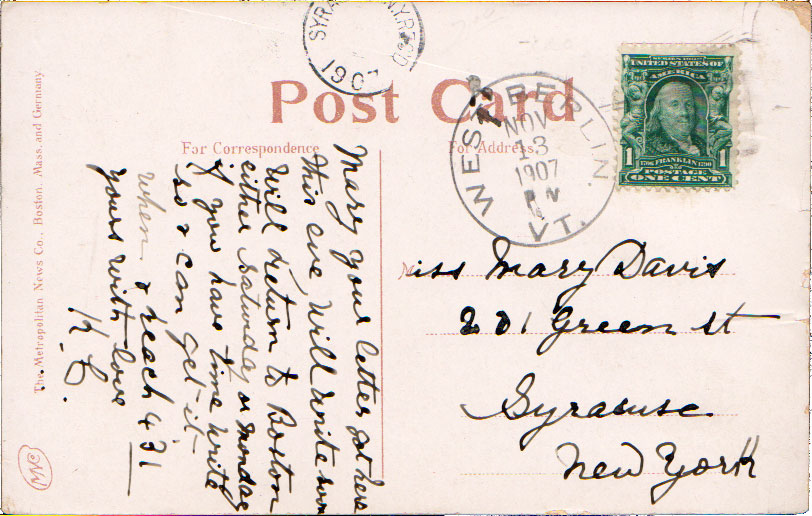 SYRA N.Y. REC'D
1907
Post Card
For Correspondence
For Address
WEST BERLIN, VT.
NOV
13
1907
UNITED STATES OF
AMERICA
1 1
1706 FRANKLIN 1790
POSTAGE
ONE CENT
Mary your letter got here
this eve, will write soon
will return to Boston
either Saturday or Monday
if you have time write
so I can get it
when I reach 431
yours with love
K.B.
Miss Mary Davis
201 Green St
Syracuse
New York
The Metropolitan News Co., Boston, Mass. and Germany.